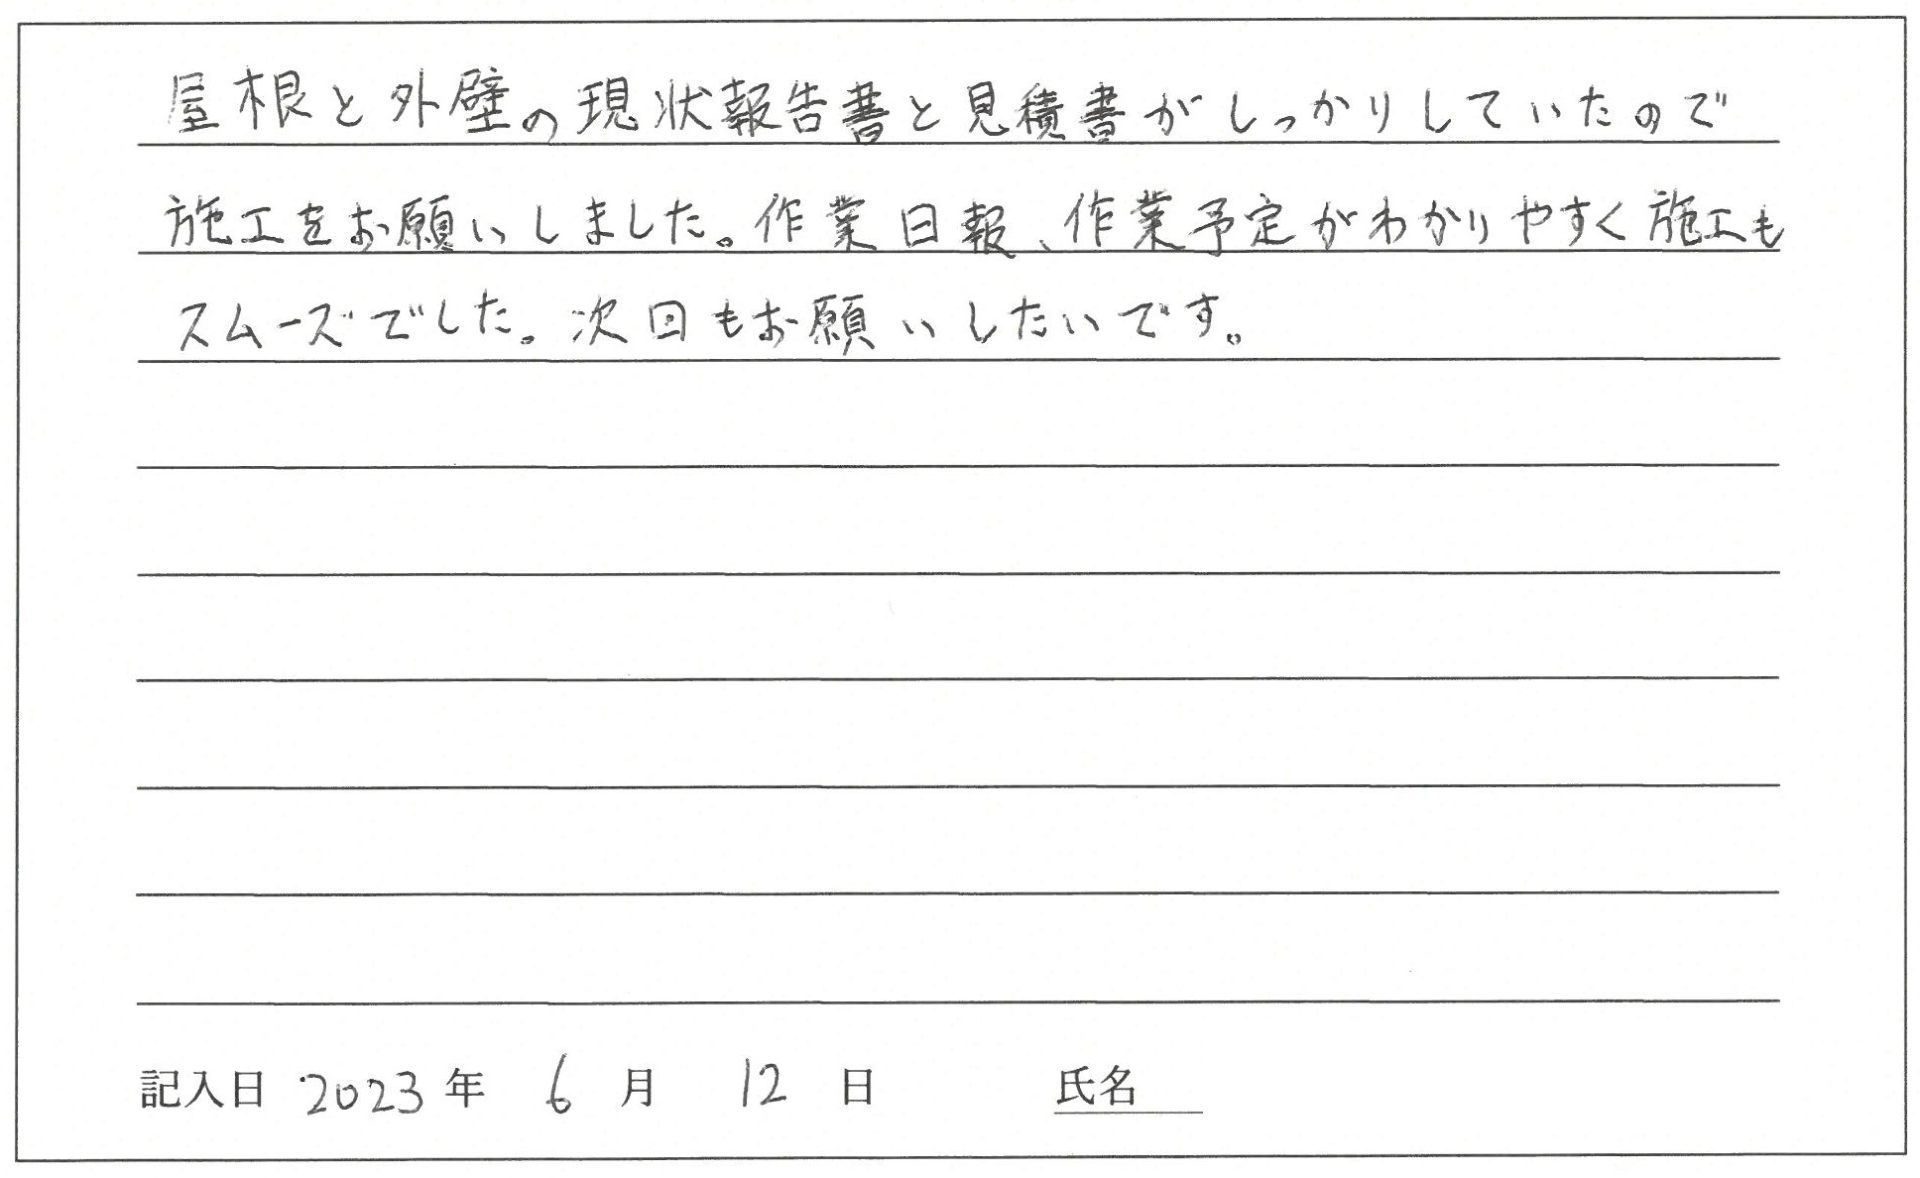 屋根と外壁の現状報告書と見積書がしっかりしていたので
施工をお願いしました。作業日報、作業予定がわかりやすく施工も
スムーズでした。次回もお願いしたいです。
記入日 2023年 6月 12日 氏名